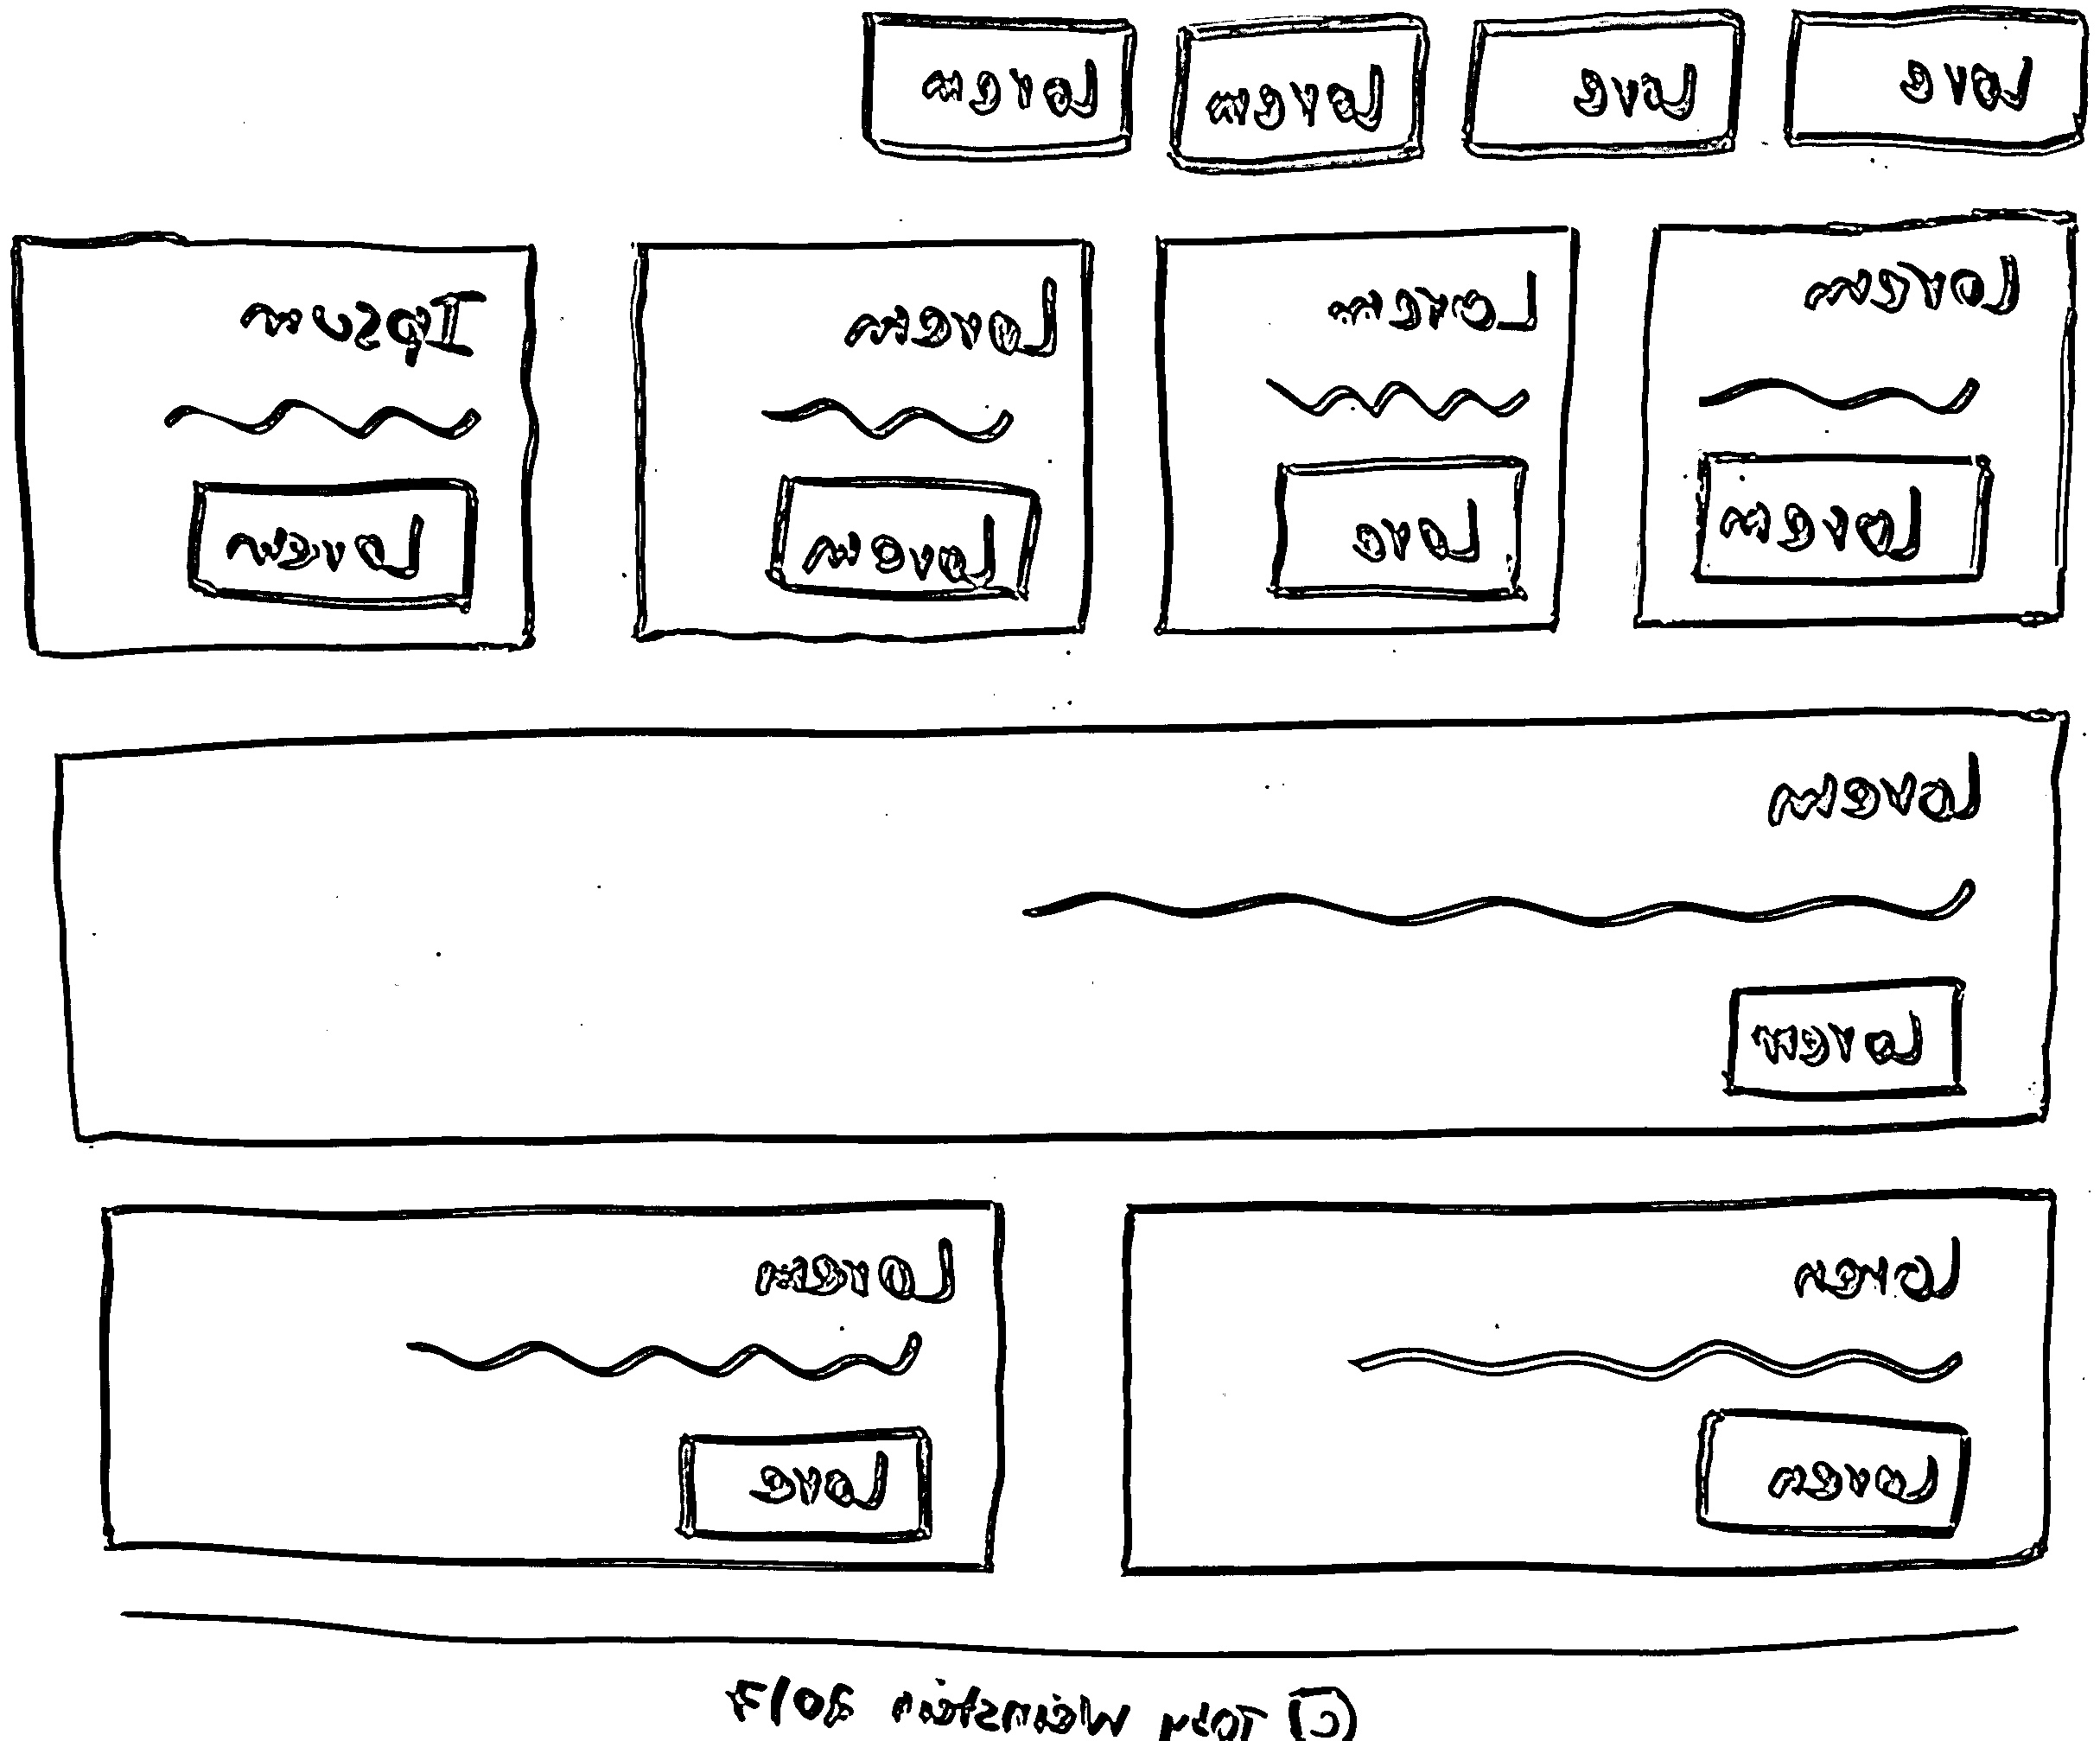 Lore Lore Lorem Lorem
Lorem Lorem Lorem Ipsum
Lorem Lore Lorem Lorem
Lorem
Lorem
Loren Lorem
Loren Lore
© Weinstein 2017